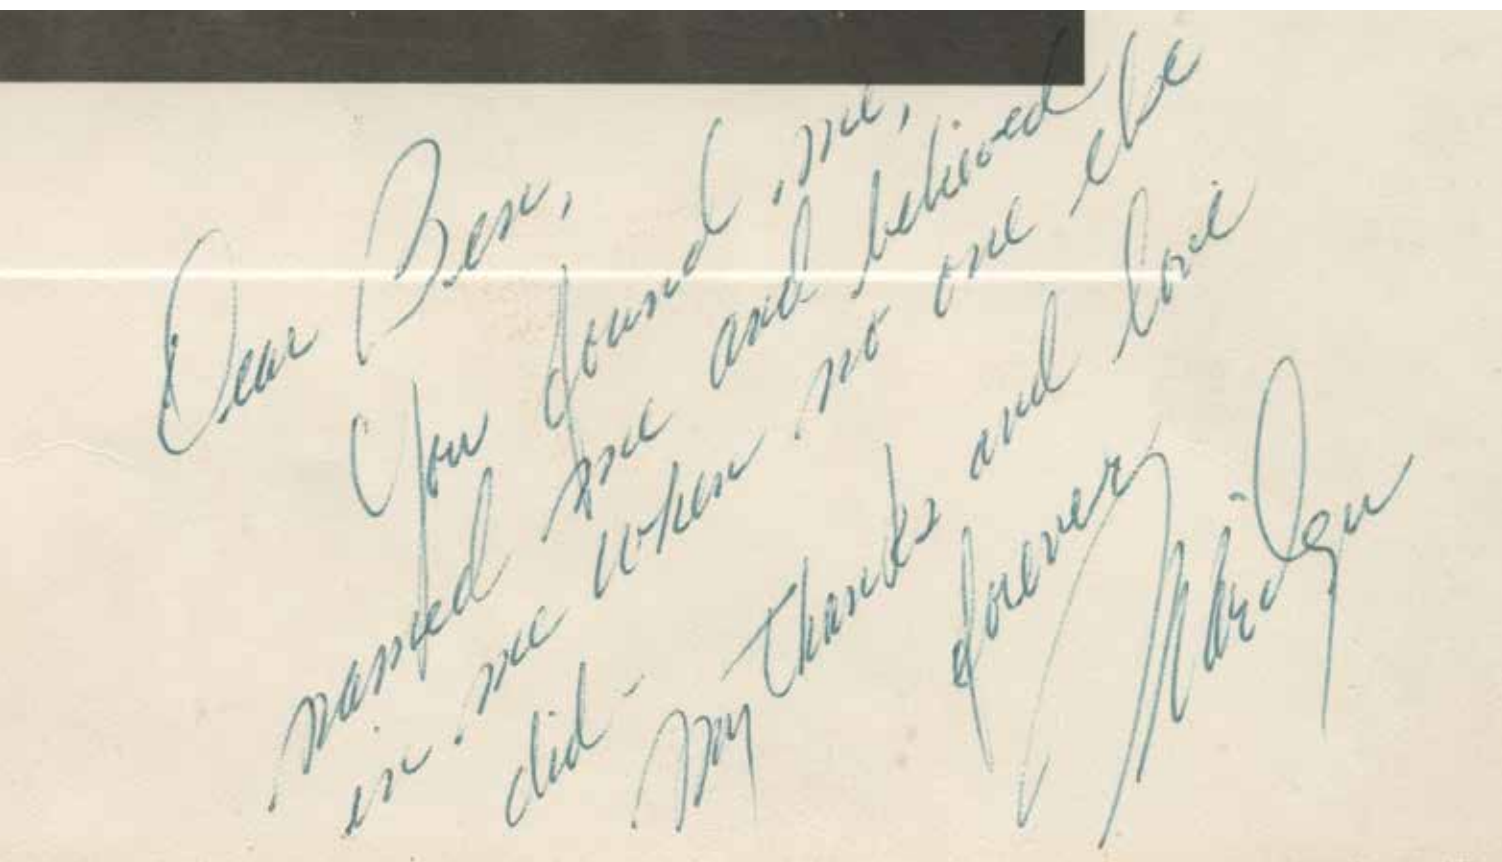 Dear Ben,
You found me,
named me and believed
in me when no one else
did. My thanks and love
forever
Marilyn